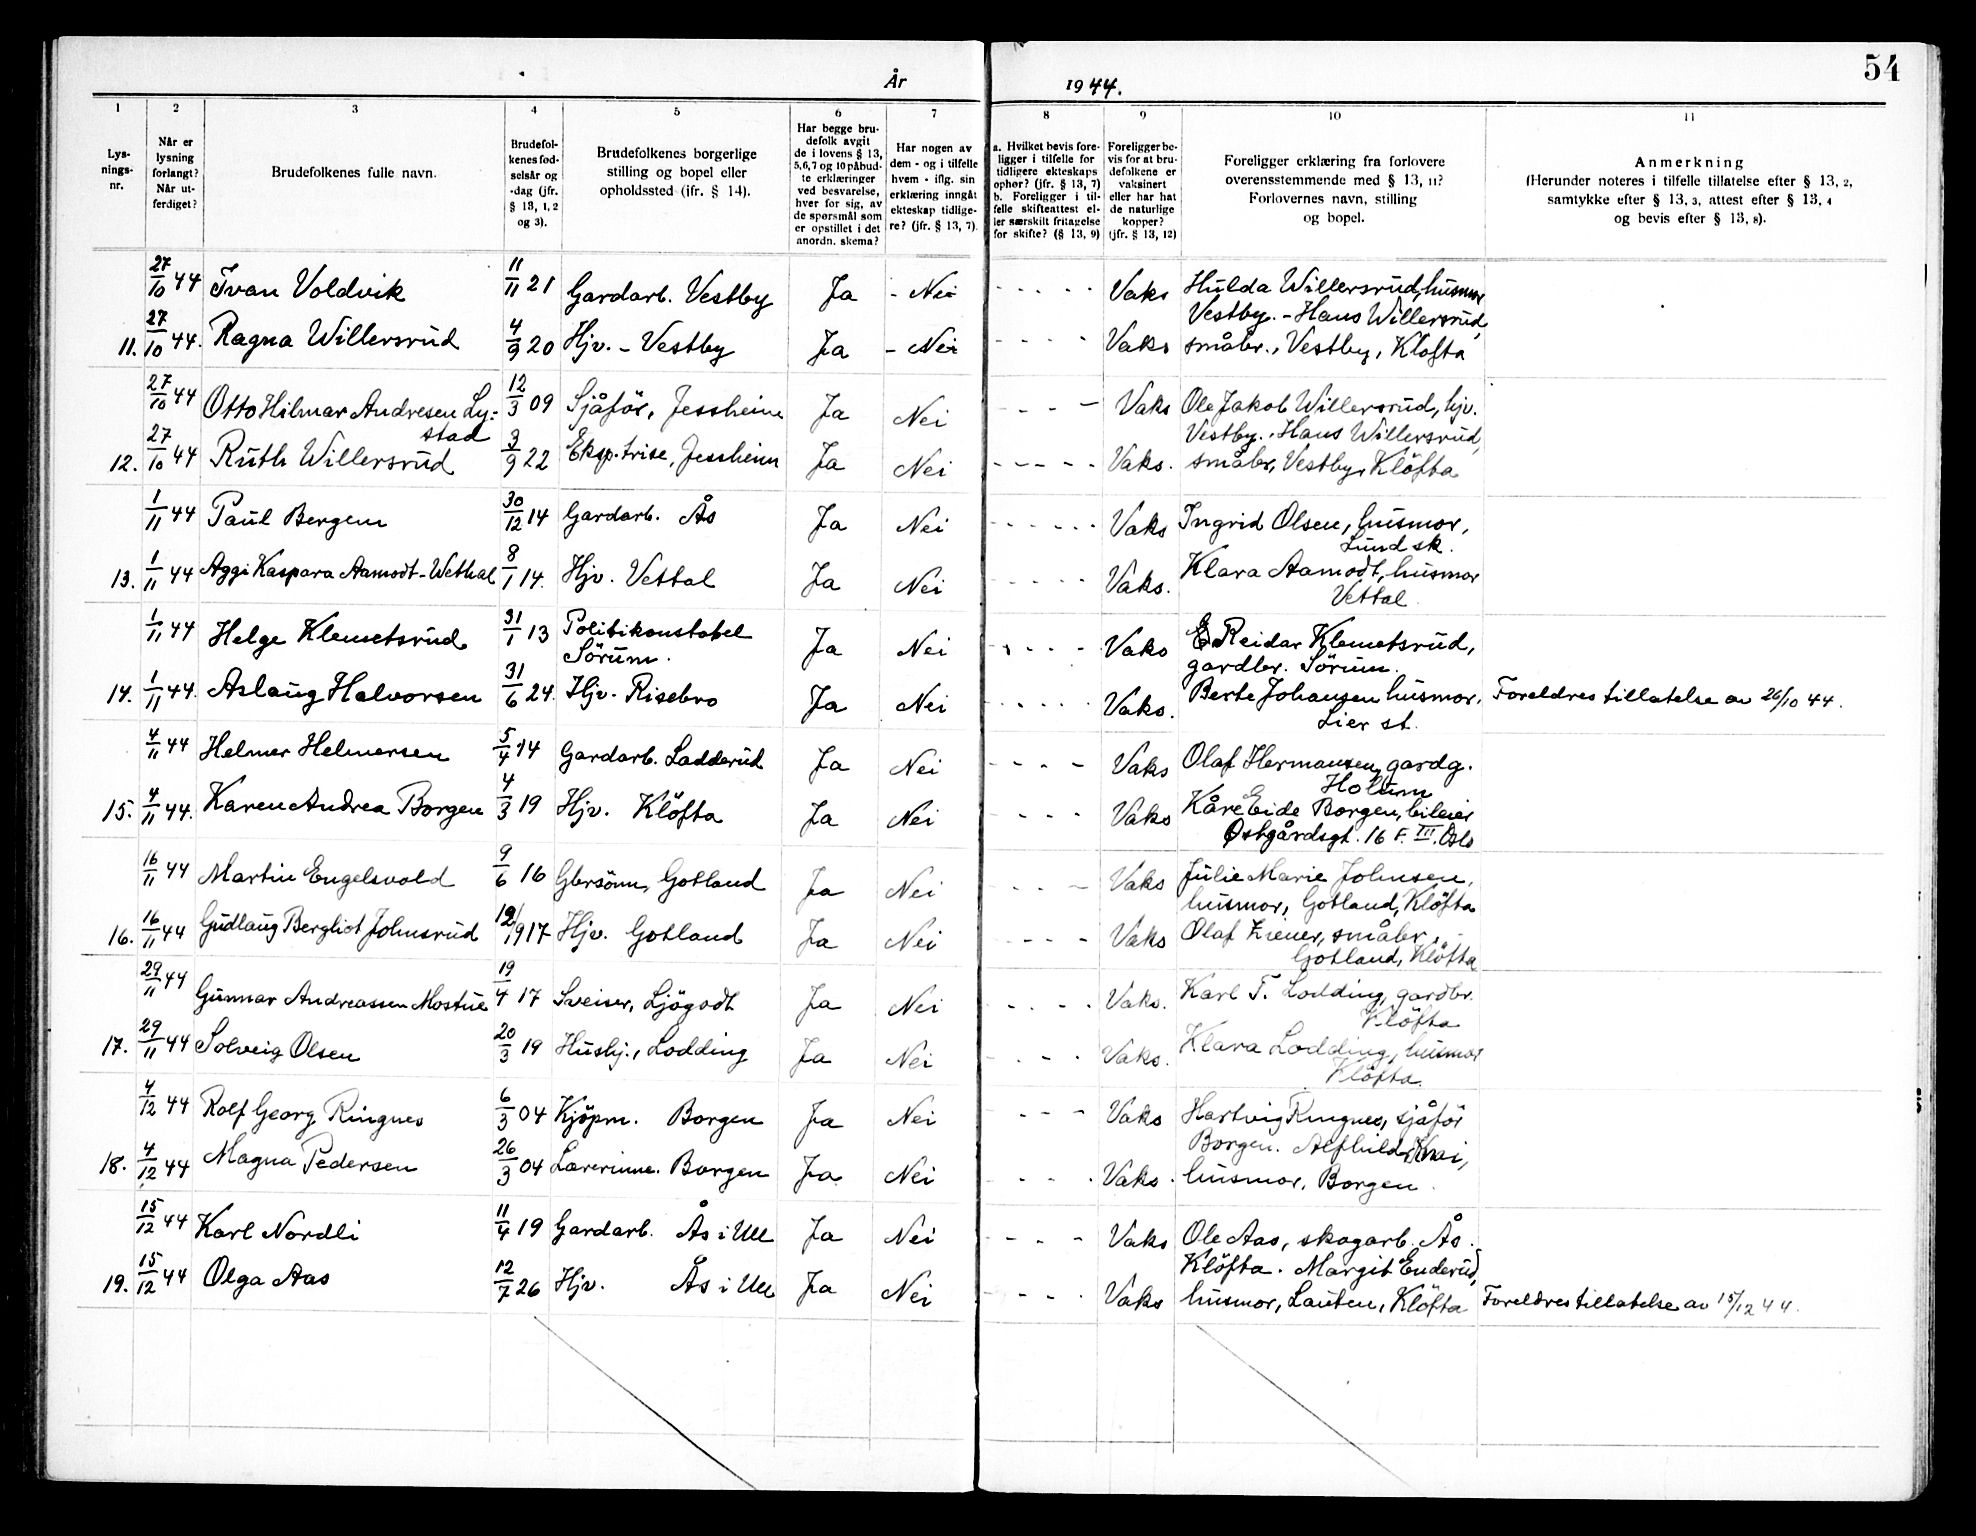 54
År 1944.
1 2 3 4 5 6 7 8 9 10 11
Lys-
nings-
nr.
Når er
lysning
forlangt?
Når ut-
ferdiget?
Brudefolkenes fulle navn.
Brudefol-
kenes fød-
selsår og
-dag (jfr.
§ 13, 1, 2
og 3).
Brudefolkenes borgerlige
stilling og bopel eller
opholdssted (jfr. § 14).
Har begge bru-
defolk avgit
de i lovens § 13,
5,6,7 og 10 påbud-
te erklæringer
ved besvarelse,
hver for sig, av
de spørsmål som
er opstillet i det
anordn. skema?
Har nogen av
dem - og i tilfelle
hvem - iflg. sin
erklæring inngått
ekteskap tidlige-
re? (jfr. § 13, 7).
a. Hvilket bevis fore-
ligger i tilfelle for
tidligere ekteskaps
ophør? (jfr. § 13, 7)
b. Foreligger i til-
felle skifteattest el-
ler særskilt fritagelse
for skifte? (§ 13, 9)
Foreligger be-
vis for at bru-
defolkene er
vaksinert
eller har hat
de naturlige
kopper?
(jfr. § 13, 12)
Foreligger erklæring fra forlovere
overensstemmende med § 13, 11?
Forlovernes navn, stilling
og bopel.
Anmerkning
(Herunder noteres i tilfelle tillatelse efter § 13, 2,
samtykke efter § 13, 3, attest efter § 13, 4
og bevis efter § 13, 8).
27/10 44 Ivan Voldvik 11/11 21 Gardarb. Vestby Ja - Nei - - - - - Vaks Hulda Willersrud, husmor
Vestby. - Hans Willersrud,
11. 27/10 44. Ragna Willersrud 4/9 20 Hjv. - Vestby Ja - Nei - - - - Vaks småbr., Vestby, Kløfta
27/10 44 Otto Hilmar Andresen Ly- 12/3 09 Sjåför, Jessheim Ja Nei - - - - Vaks Ole Jakob Willersrud, hjv.
stad Vestby. Hans Willersrud,
12. 27/10 44 Ruth Willersrud 3/9 22 Eksp.trise, Jessheim Ja Nei - - - - - Vaks. småbr, Vestby, Klöfta
1/11 44 Paul Bergem 30/12 14 Gardarb. Ås Ja Nei - - - - - - Vaks Ingrid Olsen, husmor,
Lund sk.
13. 1/11 44 Aggi Kaspara Aamodt-Wethal 8/1 14. Hjv. Vettal Ja Nei - - - - Vaks. Klara Aamodt, husmor
Vettal
1/11 44 Helge Klemetsrud 31/1 13 Politikonstabel Ja Nei - - - - Vaks E Reidar Klemetsrud,
Sörum. gardbr. Sörum.
14. 1/11 44. Aslaug Halvorsen 31/6 24. Hjv. Risebro Ja Nei - - - - - Vaks. Berte Johansen husmor, Foreldres tillatelse av 26/10 44.
Lier st.
4/11 44 Helmer Helmersen 5/4 14 Gardarb. Ladderud Ja Nei - - - - Vaks Olaf Hermansen, gardg.
Holum
15. 4/11 44. Karen Andrea Borgen 4/3 19 Hjv. Klöfta Ja Nei - - - Vaks Kåre Eide Borgen, bileier
Østgårdsgt. 16 F. III. Oslo
16/11 44 Martin Engelsvold 9/6 16 Gbrsönn, Gotland Ja Nei - - - Vaks Julie Marie Johnsen,
husmor, Gotland, Klöfta
16. 16/11 44 Gudlaug Bergliot Johnsrud 17 Hjv. Gotland Ja Nei - - - - Vaks Olaf Ziener, småbr.,
Gotland, Klöfta
29/11 44 Gunnar Andreassen Mostue 19/4 17 Sveiser, Ljögodt Ja Nei - - - - Vaks. Karl T. Lodding, gardbr.
Klöfta
17. 29/11 44 Solveig Olsen 20/3 19 Hushj., Lodding Ja Nei - - - - Vaks. Klara Lodding, husmor
Klöfta.
4/12 44 Rolf Georg Ringnes 6/3 04 Kjöpm. Borgen Ja Nei - - - Vaks Hartvig Ringnes, sjåför
Borgen. Alfhild
18. 4/12 44 Magna Pedersen 26/3 04 Lærerinne. Borgen Ja Nei - - - - Vaks. husmor, Borgen.
15/12 44 Karl Nordli 11/4 19 Gardarb. Ås i Ull Ja Nei - - - Vaks Ole Aas, skogarb. Ås.
Klöfta. Margit Enderud,
19. 15/12 44 Olga Aas 12/7 26 Hjv. Ås i Ull Ja Nei - - - - Vaks husmor, Lauten, Klöfta Foreldres tillatelse av 15/12 44.